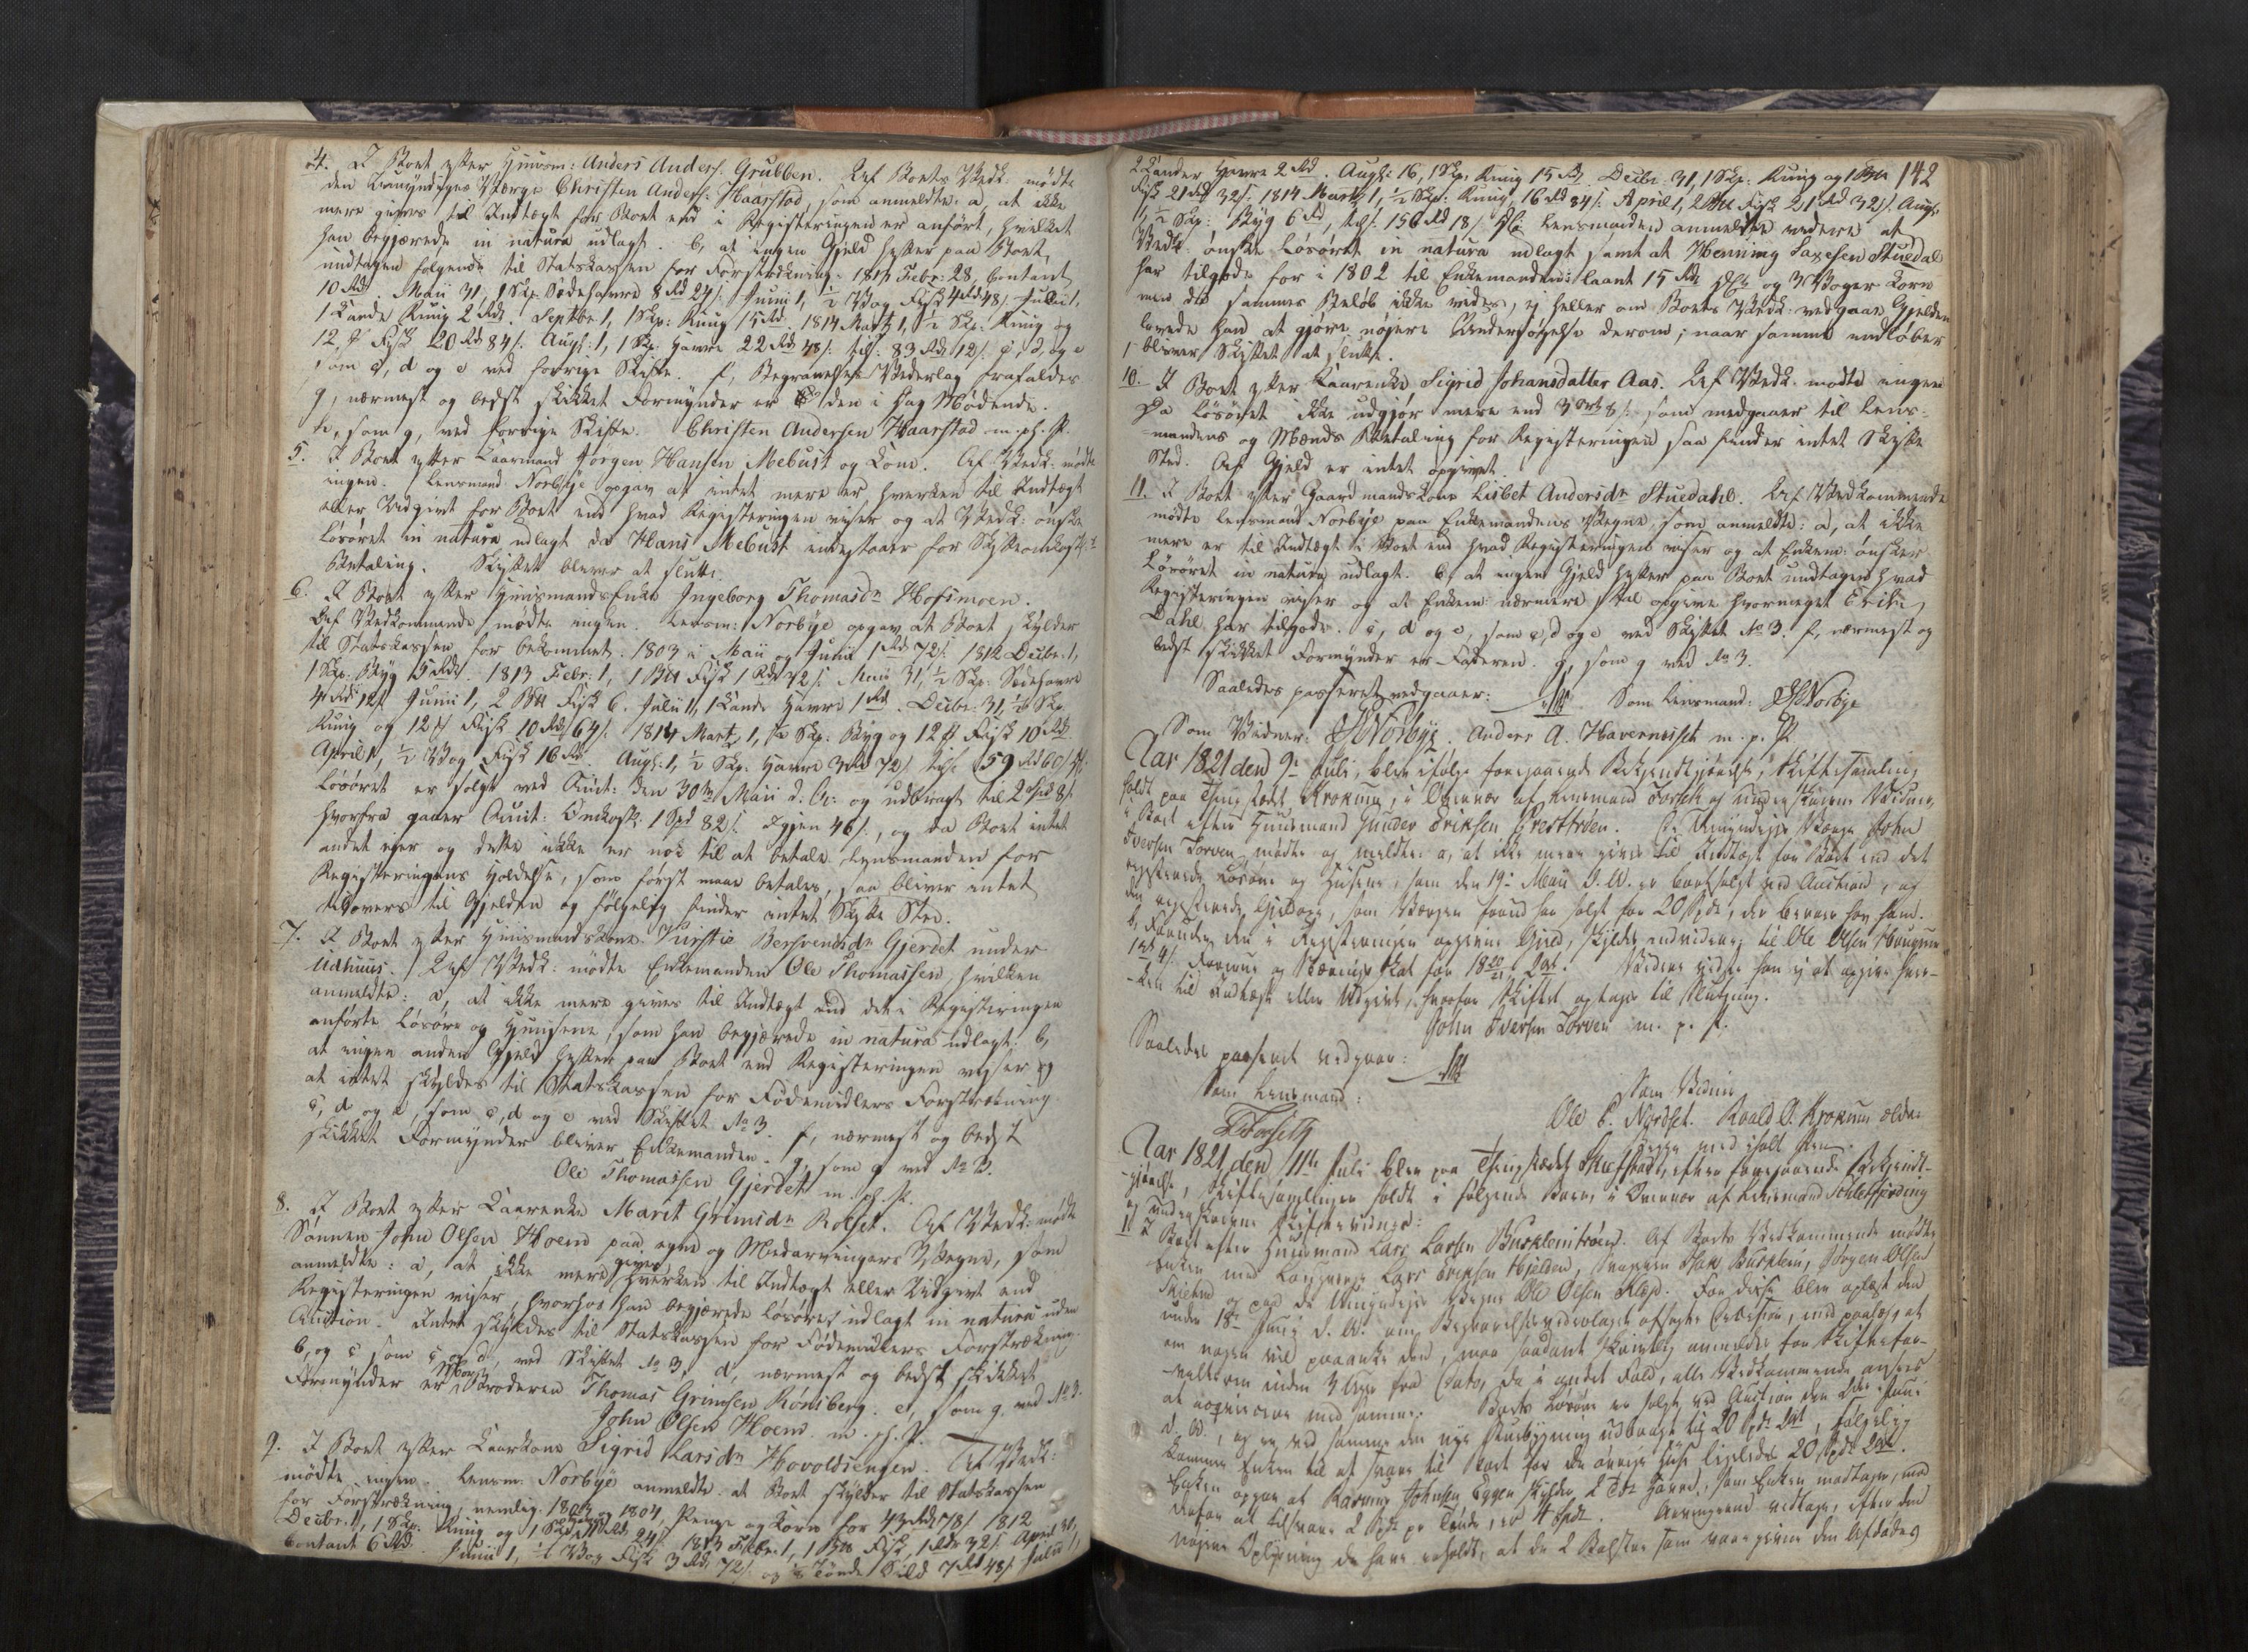 4. I Boet efter Huusm: Anders Anders. Grubben. Af Boets Vedk. mødte
den Umyndiges Værge Christen Anders. Haarstad, som anmeldte: a, at ikke
mere gives til Indtægt for Boet end i Registeringen er anført, hvilket
han begjærede in natura udlagt. b, at ingen Gjeld hefter paa Boet,
undtagen følgende til Statskassen for Forstrækning: 1813 Febr: 28, contant
10 Rd. Maii 31, 1 Skp. Sædehavre 8 Rd 24 s. Junii 1, ½ Vog Fisk 4 Rd 48 s. Julii 1,
1 Tønde Ruug 2 Rd. Septbr 1, 1 Skp: Ruug 15 Rd. 1814 Martz 1, ½ Skp. Ruug og
12 # Fisk 20 Rd 84 s. Augs: 1, 1 Skp. Havre 22 Rd 48 s. tils: 83 Rd 12 s. c, d, og e
som c, d og e ved forrige Skifte. f, Begravelses Vederlag frafaldes
g, nærmest og bedst skikket Formynder er den i Dag Mødende.
h, som g, ved forrige Skifte. Christen Andersen Haarstad m. ph. P.
5. I Boet efter Kaarmand Jørgen Hansen Mebust og Kone. Af Vedk: mødte
ingen. Lensmand Norbye opgav at intet mere er hverken til Indtægt
eller Udgivt for Boet end hvad Registeringen viser og at Vedk: ønske
Løsøret in natura udlagt da Hans Mebust indestaaer for Skifteomkost:s
Betaling. Skiftet bliver at slutte.
6. I Boet efter Huusmands Enke Ingeborg Thomasdr Hofsmoen.
Af Vedkommende mødte ingen. Lensm: Norbye opgav at Boet skylder
til Statskassen for bekommet: 1803 i Maii og Junii 1 Rd 72 s. 1812 Decbr: 1,
1 Skp. Byg 15 Rd. 1813 Febr: 1, 1 Bdt Fisk 1 Rd 32 s. Maii 31, ½ Skp. Sædehavre
4 Rd 12 s. Junii 1, 2 Bdt Fisk 6. Julii 1, 1 Tønde Havre 1 Rd. Decbr: 31, ½ Skp.
Ruug og 12 # Fisk 10 Rd 64 s. 1814 Martz 1, ½ Skp. Byg og 12 # Fisk 10 Rd
April 1, ½ Vog Fisk 16 Rd. Augs: 1, ½ Skp. Havre 3 Rd 72 s. tils: 59 Rd 60 s.
Løsøret er solgt ved Auct: den 30te Maii d. A: og udbragt til 2 Spd 8 s.
hvorfra gaaer Auct: Omkost: 1 Spd 82 s. igjen 46 s., og da Boet intet
andet eier og dette ikke er nok til at betale Lensmanden for
Registeringens Holdelse, som først maae betales, saa bliver intet
tilovers til Gjelden og følgelig finder intet Skifte Sted.
7. I Boet efter Huusmandskone Kirstie Bersvendsdr Gjerdet under
Udhuus. Af Vedk: mødte Enkemanden Ole Thomassen, hvilken
anmeldte: a, at ikke mere gives til Indtægt end det i Registeringen
anførte Løsøre og Huusene, som han begjærede in natura udlagt: b,
at ingen anden Gjeld hefter paa Boet end Registeringen viser og
at intet skyldes til Statskassen for Fødemidlers Forstrækning
c, d og e, som c, d og e ved Skiftet No 3. f, nærmest og bedst
skikket Formynder bliver Enkemanden. g, som g ved No 3.
Ole Thomassen Gjerdet m. ph. P.
8. I Boet efter Kaarenke Marit Grimsdr Rolset. Af Vedk: mødte
Sønnen John Olsen Hoem paa egne og Medarvingers Vegne, som
anmeldte: a, at ikke mere gives hverken til Indtægt eller Udgivt end
Registeringen viser, hvorhos han begjærede Løsøret udlagt in natura uden
Auction. Intet skyldes til Statskassen for Fødemidlers Forstrækning
b, og c som c og d, ved Skiftet No 3, d, nærmest og bedst skikket
Formynder er Morbroderen Thomas Grimsen Rønsberg. e, som g, ved No 3.
John Olsen Hoem. m. ph. P.
9. I Boet efter Kaarkone Sigrid Larsdr Hovoldsengen. Af Vedk:
mødte ingen. Lensm: Norbye anmeldte: at Boet skylder til Statskassen
for Forstrækning, nemlig: 1803 og 1804, Penge og Korn for 43 Rd 78 s. 1812
Decbr: 1, 1 Skp. Ruug og 1 Skp 24 s. 1813 Febr: 1, 1 Bdt Fisk, 1 Rd 32 s. April 30,
contant 6 Rd. Junii 1, ½ Vog Fisk 3 Rd 72 s. og ⅛ Tønde Sild 7 Rd 48 s. Julii 1,
142
2 Tønder Havre 2 Rd. Augs: 16, 1 Skp. Ruug 15 Rd. Decbr: 31, 1 Skp. Ruug og 1 Bdt
Fisk 21 Rd 32 s. 1814 Martz 1, ½ Skp: Ruug, 16 Rd 84 s. April 1, 2 Bdt Fisk 21 Rd 32 s. Augs:
1, ½ Skp: Byg 6 Rd, tils. 156 Rd 18 s. Lensmanden anmeldte videre at
Vedk. ønske Løsøret in natura udlagt samt at Henning Saxesen Stuedal
har tilgode for i 1802 til Enkemanden laant 15 Rd og 3 Voger Korn
men da sammes Beløb ikke vides, ej heller om Boets Vedk. vedgaae Gjelden
lovede han at gjøre nøiere Undersøgelse derom; naar samme indløber
bliver Skiftet at slutte.
10. I Boet efter Kaarenke Sigrid Johansdatter Aas. Af Vedk. mødte ingen
Da Løsøret ikke udgjør mere end 3 Ort 8 s. som medgaaer til Lens-
mandens og Mænds Betaling for Registeringen saa finder intet Skifte
Sted. Af Gjeld er intet opgivet.
11. I Boet efter Gaardmandskone Lisbet Andersdr Stuedahl. Af Vedkommende
mødte Lensmand Norbye paa Enkemandens Vegne, som anmeldte: a, at ikke
mere er til Indtægt i Boet end hvad Registeringen viser og at Enkem: ønsker
Løsøret in natura udlagt. b, at ingen Gjeld hefter paa Boet undtagen hvad
Registeringen viser og at Enkem: nærmere skal opgive hvormeget Erik
Dahl har tilgode. c, d og e, som c, d og e ved Skiftet No 3. f, nærmest og
bedst skikket Formynder er Faderen. g, som g ved No 3.
Saaledes passeret vedgaaer: Som Lensmand: Norbye
Som Vidner: Norbye. Anders A. Havernesset m. p. P.
Aar 1821 den 9de Juli, blev ifølge foregaaende Bekjendtgjørelse, Skiftesamling
holdt paa Thingstedet Krokum, i Overvær af Lensmand Forseth og underskrevne Vidner,
i Boet efter Huusmand Gunder Eriksen Gresthroen. De Umyndiges Værge John
Iversen Torven mødte og meldte: a, at ikke mere gives til Indtægt for Boet end det
registrerede Løsøre og Husene, som den 19de Maii d. A. er bortsolgt ved Auction, og
den registrerede, som Værgen forud har solgt for 20 Spdr, der beroer hos ham.
b, Foruden den i Registreringen opgivne Gjæld, skyldes endvidere til Ole Olsen Haugum
1 ort 4 s. Skat for 1820/21 2 ort. Videre vidste han ej at opgive hver-
-ken til Indtægt eller Udgivt, hvorfor Skiftet optages til Slutning.
John Iversen Torven m. p. P.
Saaledes passeret vedgaaer:
Som Lensmand: Som Vidner
Forseth Ole P. Nordset. Roald O. Krokum ældre
begge med iholdt Pen.
Aar 1821 den 11te Juli blev paa Thingstedet Klefstad, efter foregaaende Bekjendt-
gjørelse, Skiftesamlingen holdt i følgende Boer, i Overvær af Lensmand Schlefsjerding
og underskrevne Skiftevidner:
1. I Boet efter Huusmand Lars Larsen Buskleintrøen. Af Boets Vedkommende mødte
Enken med Laugværge Lars Eriksen Hjelden, Busklein, Jørgen Olsen
og paa de Umyndiges Vegne Ole Olsen. For disse blev oplæst den
under 18de Juny d. A. om Begravelsesvederlaget afsagte Decision, med paalæg, at
om nogen vil paaanke den, maa saadant skriftlig anmeldes for Skiftefor-
valteren inden 3 Uger fra Dato, da i andet Fald, alle Vedkommende ansees
at acquiescere med samme. Boets Løsøre er solgt ved Auction den Juni
d. A., og er ved samme den nye Stuebygning udbragt til 20 Spdr 2 ort, følgelig
kommer Enken til at svare til Boet for de øvrige Huse ligeledes 20 Spdr 2 ort.
Enken opgav at Rasmus Johnsen Eggen skylder 2 Tdr Havre, som Enken modtager, mod
derfor at tilsvare 2 Spdr pr Tønde, er 4 Spdr. Arvingerne vedtage, efter den
nøiere Oplysning de have erholdt, at de 2 som vare givne den Afdødes